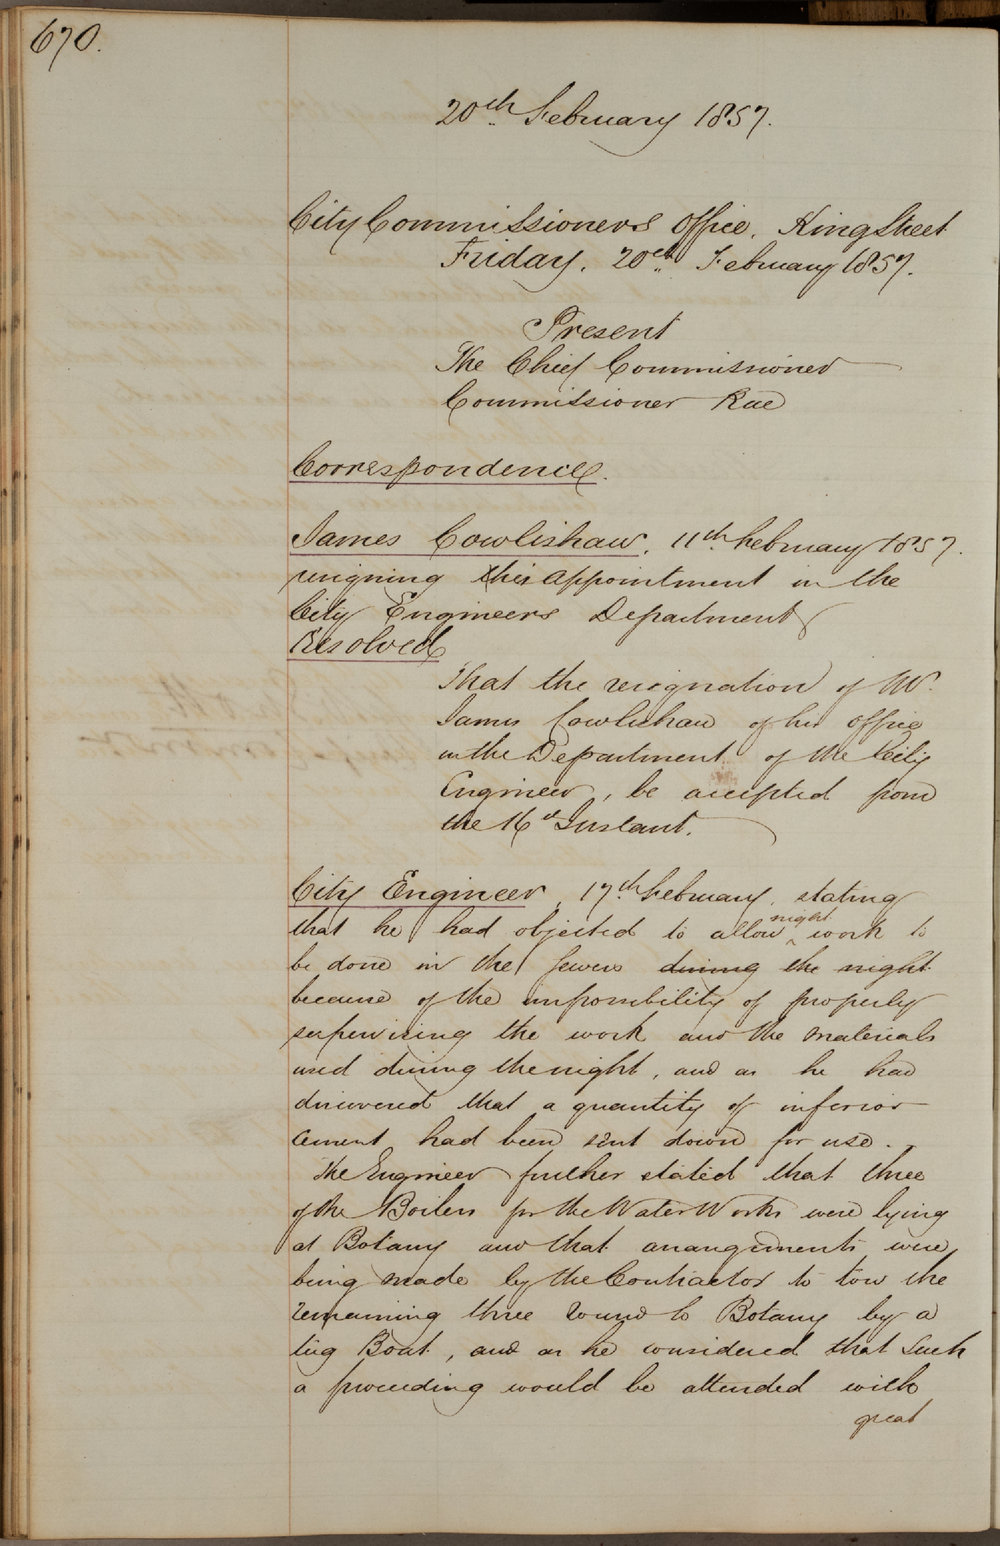 670.
20th February 1857.
City Commissioners Office, King Street
Friday, 20th February 1857.
Present
The Chief Commissioner
Commissioner Rae
Correspondence.
James Cowlishaw, 11th February 1857.
resigning his appointment in the
City Engineers Department
Resolved
That the resignation of Mr.
James Cowlishaw of his office
in the Department of the City
Engineer, be accepted from
the 16th Instant.
City Engineer, 17th February, stating
that he had objected to allow night work to
be done in the sewers during the night
because of the impossibility of properly
supervising the work and the materials
used during the night, and as he had
discovered that a quantity of inferior
cement had been sent down for use.
The Engineer further stated that three
of the Boilers for the Water Works were lying
at Botany and that arrangements were
being made by the Contractor to tow the
remaining three round to Botany by a
tug Boat, and as he considered that such
a proceeding would be attended with
great